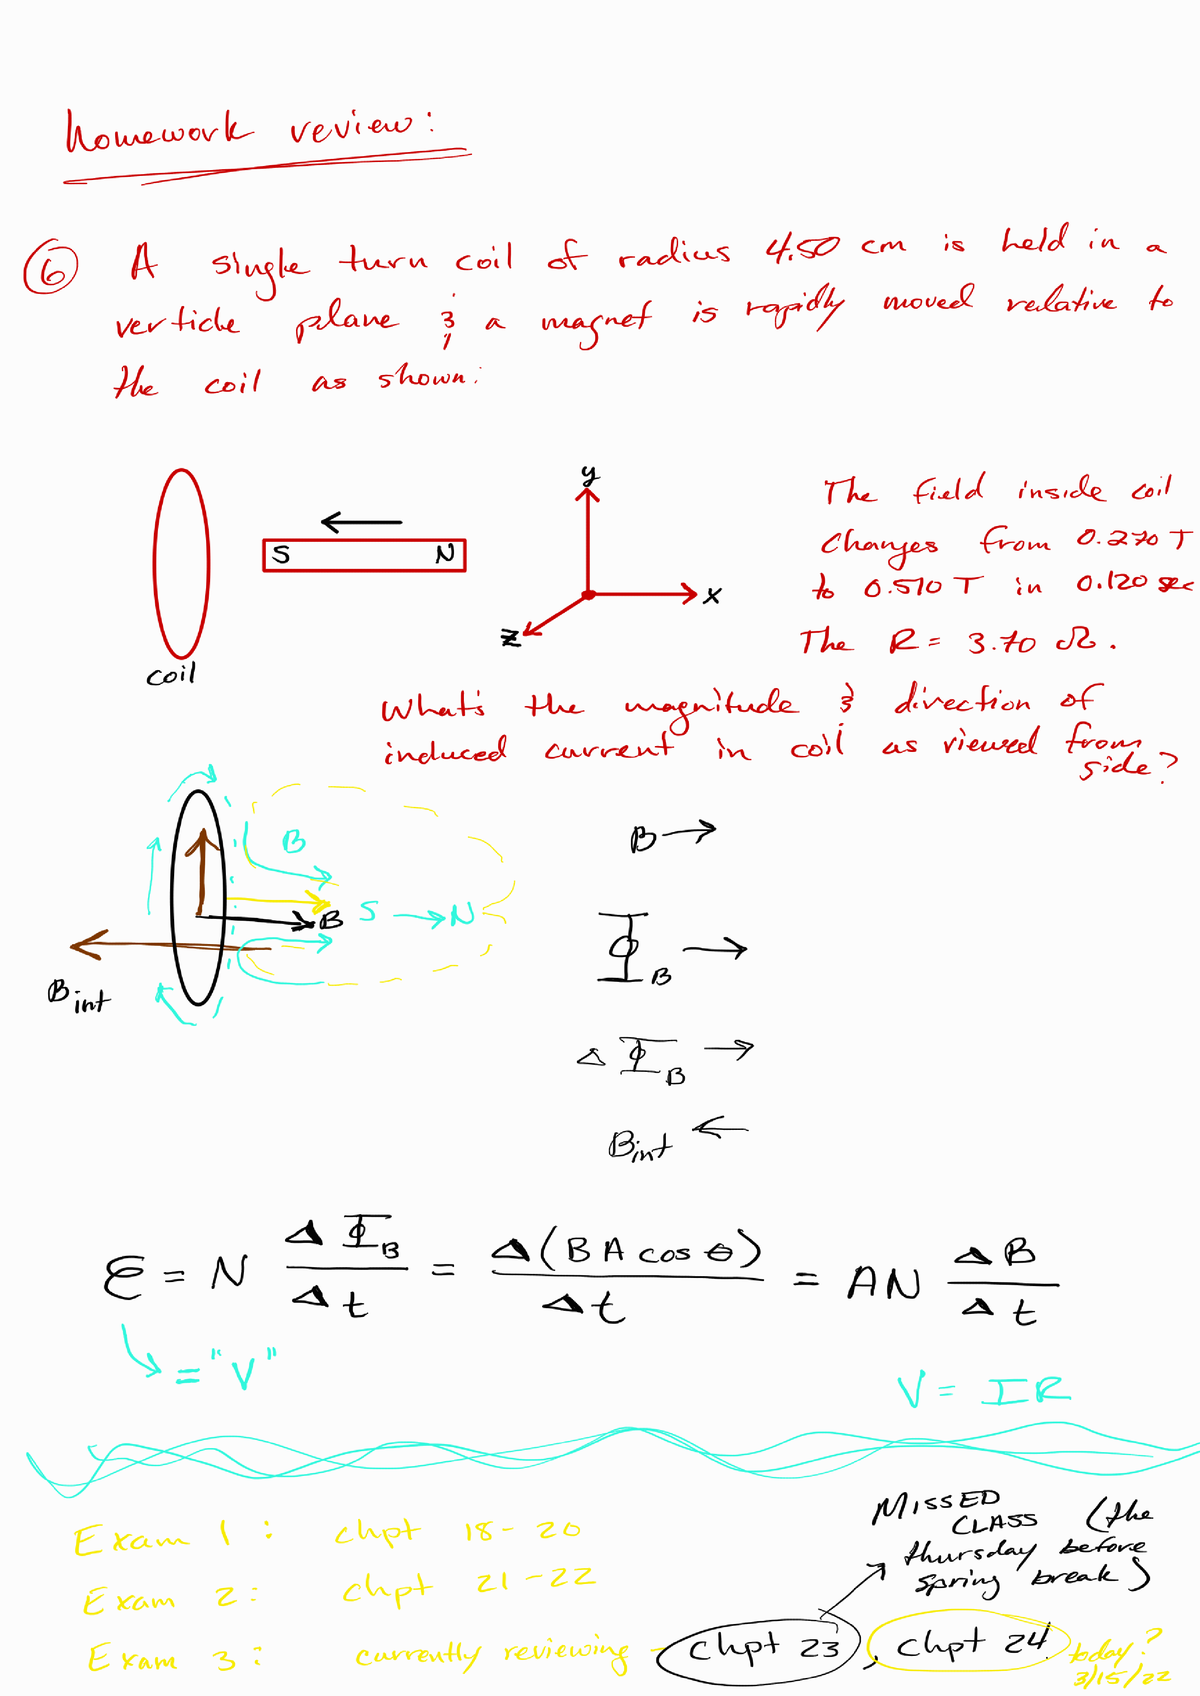 Homework review:
⑥ A single turn coil of radius 4.50 cm is held in a
verticle plane & a magnet is rapidly moved relative to
the coil as shown:
y
S N
x
z
coil
The field inside coil
changes from 0.270 T
to 0.510 T in 0.120 sec
The R = 3.70 Ω.
What's the magnitude & direction of
induced current in coil as viewed from
side?
B
B S → N
B int
B →
Φ_B →
Δ Φ_B →
B int ←
ℰ = N ΔΦ_B / Δt = Δ(BA cos θ) / Δt = AN ΔB / Δt
= "V"
V = IR
Exam 1: chpt 18-20
Exam 2: chpt 21-22
Exam 3: currently reviewing - chpt 23, chpt 24
MISSED
CLASS (the
thursday before
spring break)
today?
3/15/22